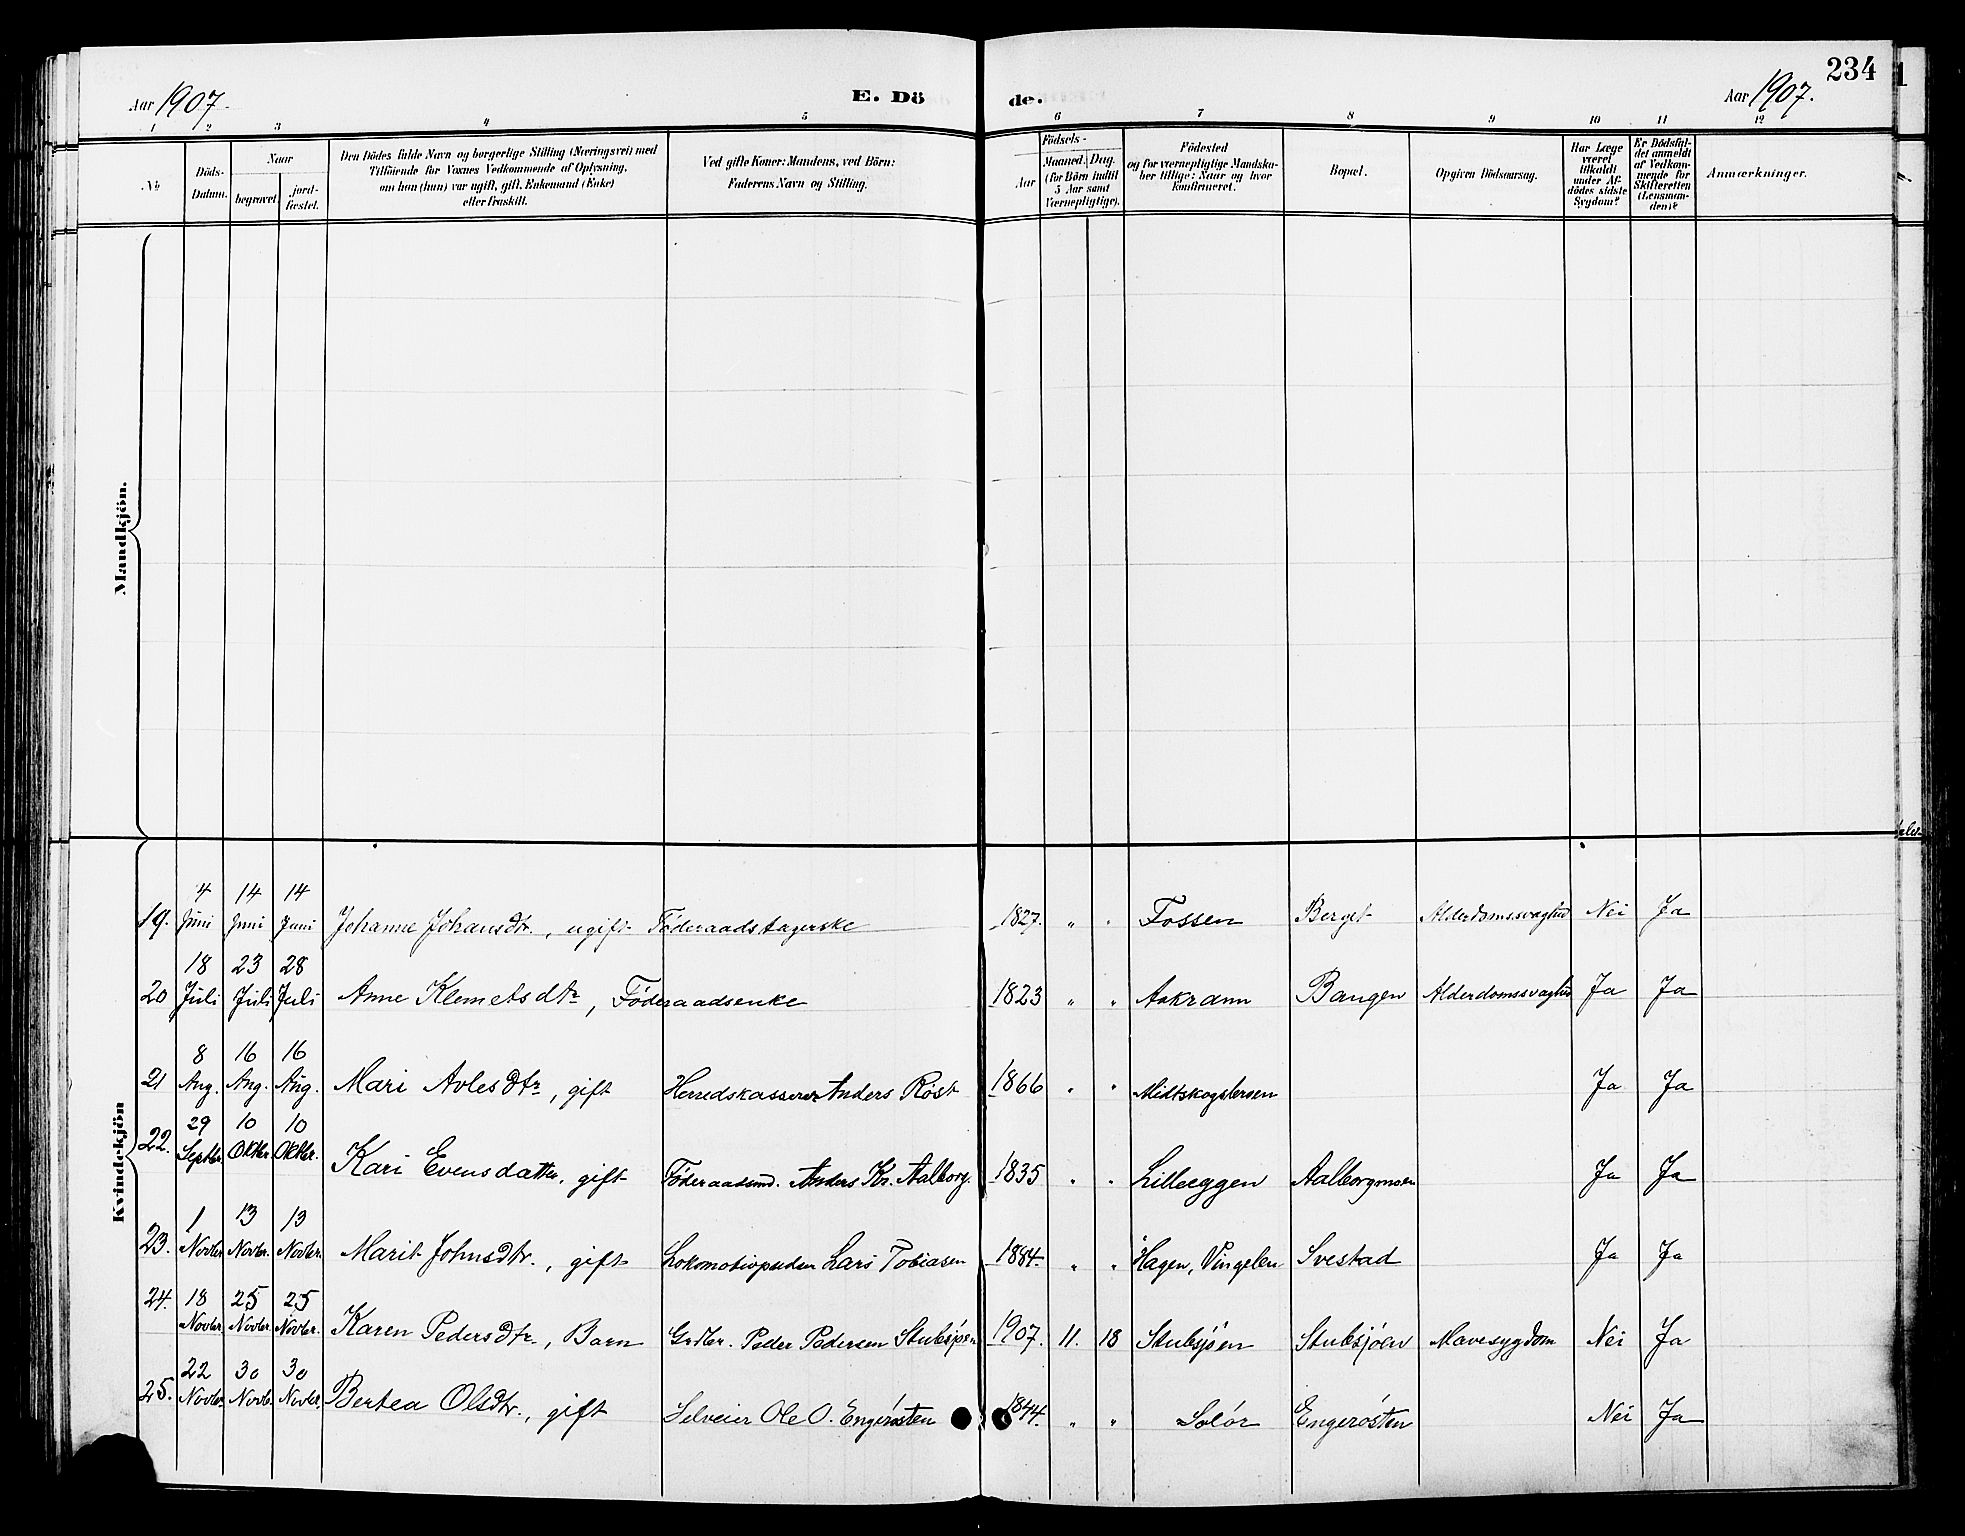 234
Aar 1907.
E. Dö
de.
Aar 1907.
1 2 3 4 5 6 7 8 9 10 11 12
No
Döds-Datum.
Naar
begravet
jord-fæstet.
Den Dödes fulde Navn og borgerlige Stilling (Næringsvei) med
Tilföiende for Voxnes Vedkommende af Oplysning,
om han (hun) var ugift, gift, Enkemand (Enke)
eller fraskilt.
Ved gifte Koner: Mandens, ved Börn:
Faderens Navn og Stilling.
Födsels-
Aar
Maaned. Dag.
(for Börn indtil
5 Aar samt
Værnepligtige).
Födested
og for værnepligtige Mandska-
ber tillige: Naar og hvor
Konfirmeret.
Bopæl.
Opgiven Dödsaarsag.
Har Læge
været
tilkaldt
under Af-
dödes sidste
Sygdom?
Er Dödsfal-
det anmeldt
af Vedkom-
mende for
Skifteretten
(Lensman-
den)?
Anmærkninger.
Mandkjön.
Kvindekjön
19. 4 Juni 14 Juni 14 Juni Johanne Johansdtr., ugift Föderaadstagerske 1827. " " Fossen Berget Alderdomssvaghed Nei Ja
20 18 Juli 23 Juli 28 Juli Anne Klemetsdtr, Föderaadsenke 1823 " " Aakrann Bangen Alderdomssvaghed Ja Ja
21 8 Aug. 16 Aug. 16 Aug. Mari Avlesdtr, gift Herredskasserer Anders Röst 1866 " " Midtskogstersen Ja Ja
22. 29 Septbr. 10 Oktbr. 10 Oktbr. Kari Evensdatter, gift Föderaadsmd. Anders Kr. Aalborg. 1835 " " Lilleeggen Aalborgmoen Ja Ja
23. 1 Novbr. 13 Novbr. 13 Novbr. Marit Johnsdtr., gift Lokomotivpudser Lars Tobiasen 1884. " " Hagen, Vingelen Svestad Ja Ja
24. 18 Novbr. 25 Novbr. 25 Novbr. Karen Pedersdtr, Barn Grdbr. Peder Pedersen Stubsjöen 1907. 11. 18 Stubsjöen Stubsjöen Mavesygdom Nei Ja
25. 22 Novbr. 30 Novbr. 30 Novbr. Bertea Olsdtr., gift Selveier Ole O. Engerösten 1844. " " Solör Engerösten Nei Ja